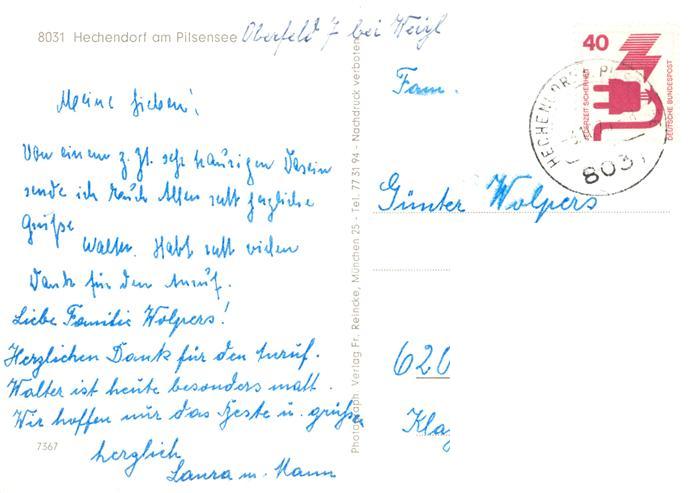 8031 Hechendorf am Pilsensee Oberfeld 7 bei Weigl
Meine Lieben!
Von einem z. Zt. sehr traurigen Dasein
sende ich Euch Allen recht herzliche
Grüße
Walter. Habt recht vielen
Dank für den Anruf.
Liebe Familie Wolpers!
Herzlichen Dank für den Anruf.
Walter ist heute besonders matt.
Wir hoffen nur das Beste u. grüßen
herzlich
Laura u. Mann
7367
Photograph. Verlag Fr. Reincke, München 25 - Tel. 77 31 94 - Nachdruck verboten
40
JEDERZEIT SICHERHEIT
DEUTSCHE BUNDESPOST
HECHENDORF
8031
Fam.
Günter Wolpers
620
Kla